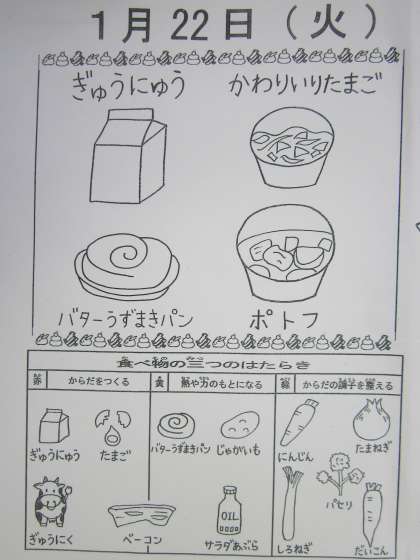 1月22日(火)
ぎゅうにゅう かわりいりたまご
バターうずまきパン ポトフ
食べ物の三つのはたらき
赤 からだをつくる 黄 熱や力のもとになる 緑 からだの調子を整える
ぎゅうにゅう たまご バターうずまきパン じゃがいも にんじん たまねぎ
パセリ
ぎゅうにく ベーコン OIL サラダあぶら しろねぎ だいこん